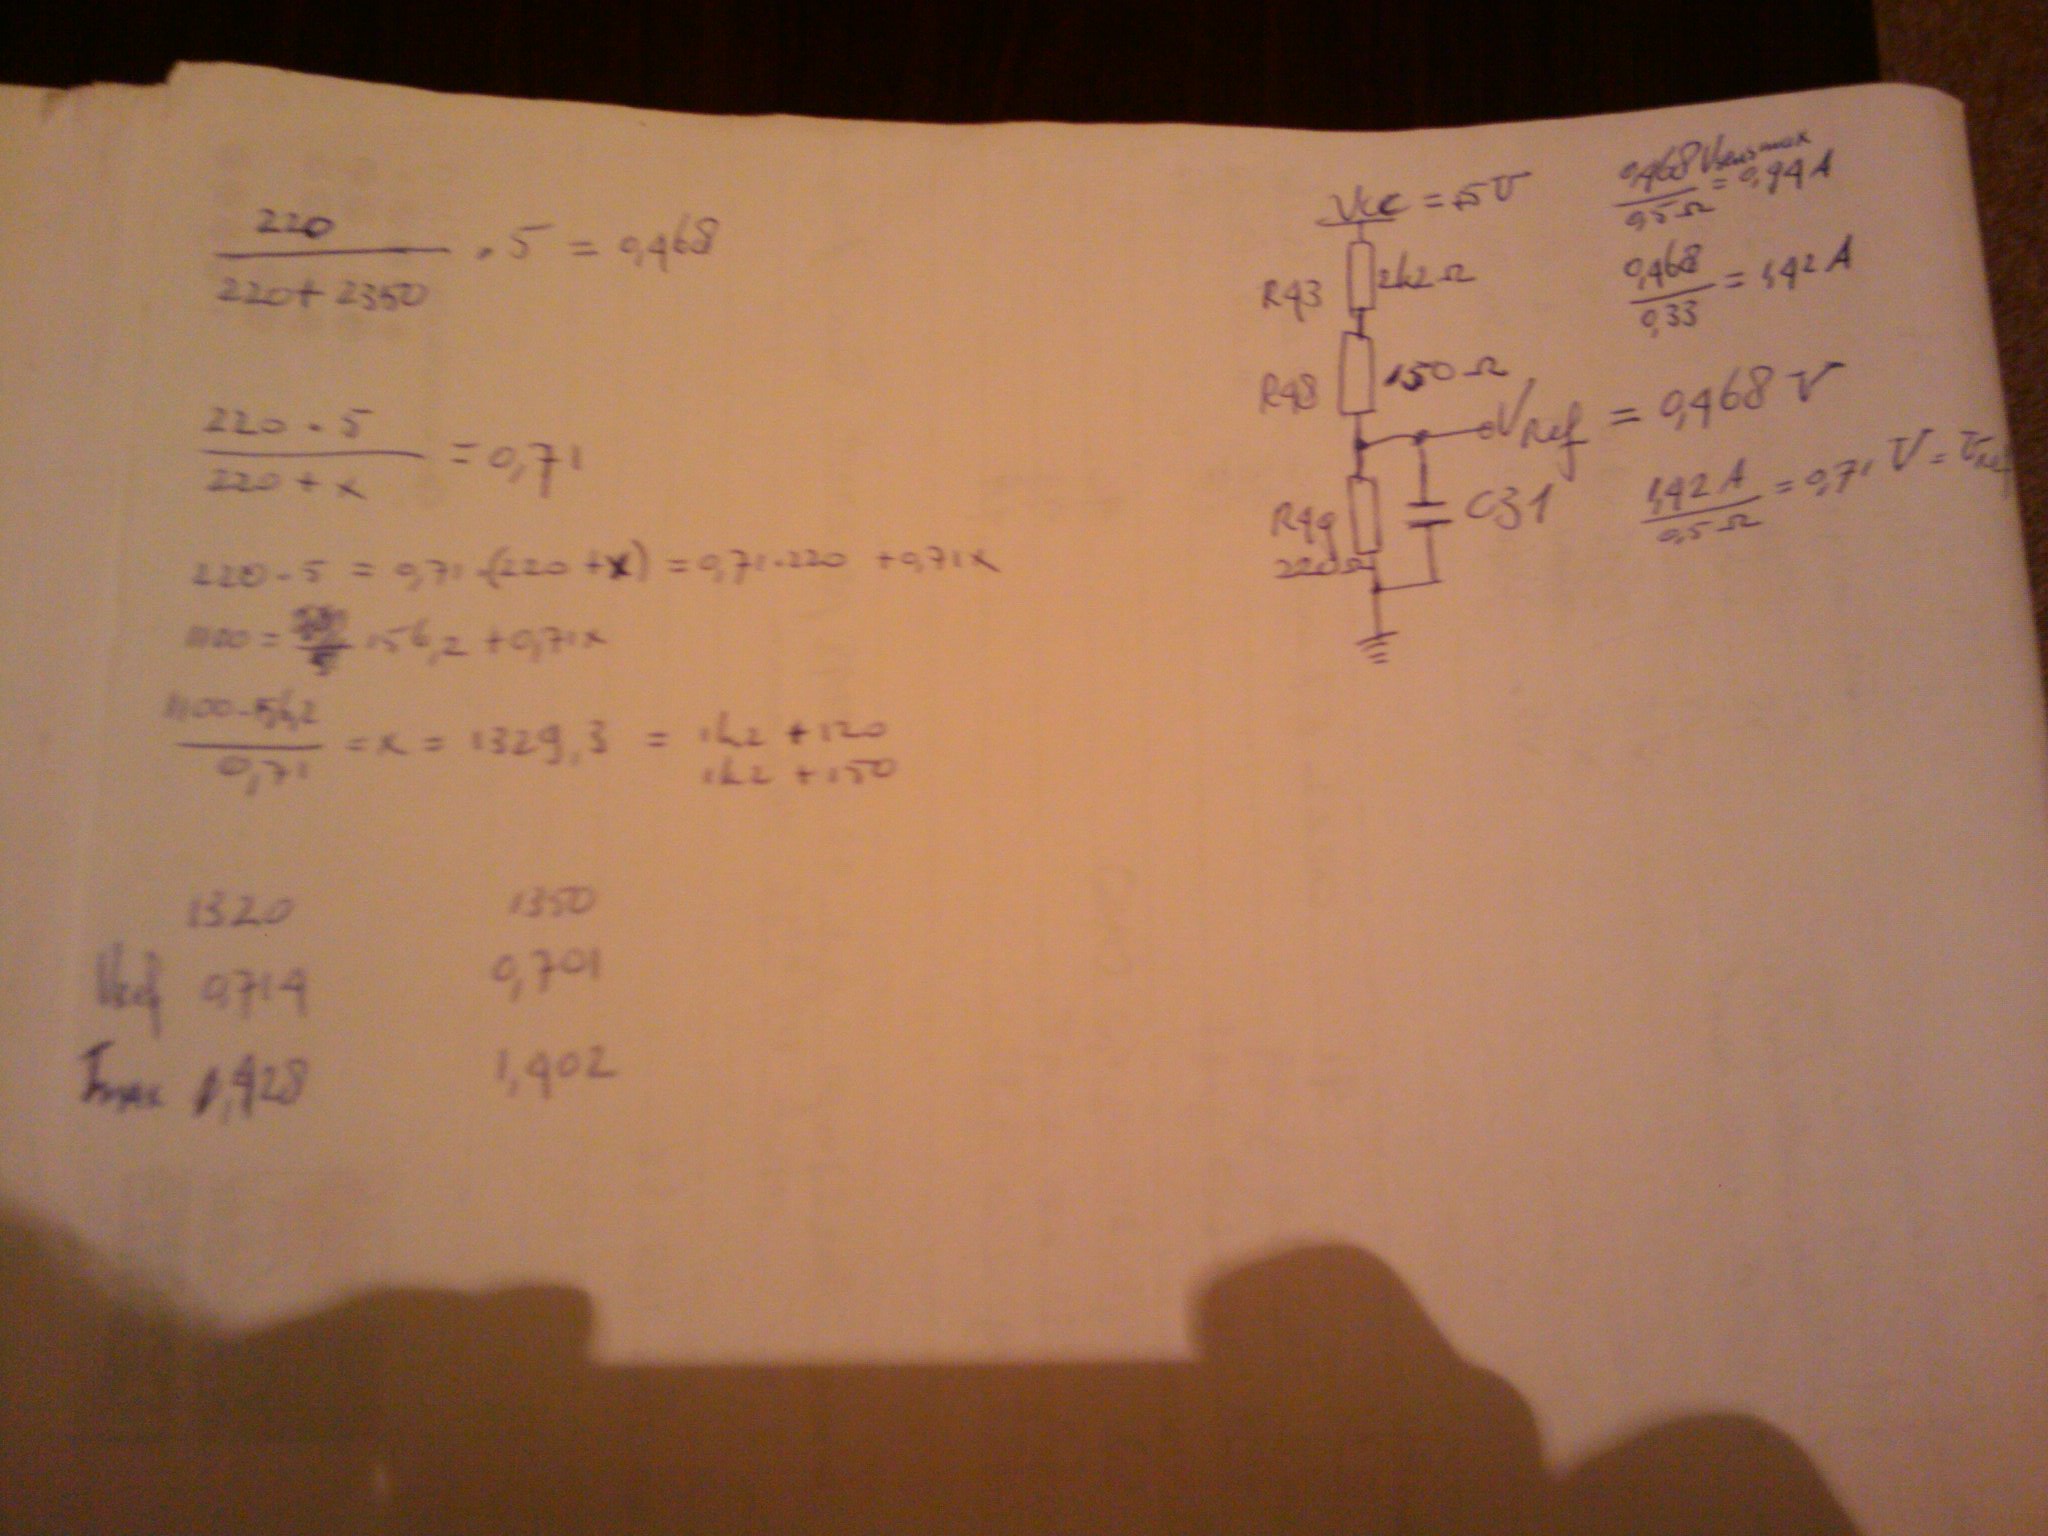 220
220+ 2350
. 5 = 0,468
220 . 5
220 + x
= 0,71
220 . 5 = 0,71 .(220 +x) = 0,71.220 +0,71x
1100 = 156,2 +0,71x
1100-156,2
0,71
= x = 1329,3 = 1k2 +120
1k2 +150
1320 1350
Vref 0,714 0,701
Imax 1,428 1,402
Vcc = 5V
R43 2k2 Ω
R48 150 Ω
VRef = 0,468 V
R49 C31
220Ω
0,468 Vsensmax
0,5 Ω
= 0,94 A
0,468
0,33
= 1,42 A
1,42 A
0,5 Ω
= 0,71 V = VRef